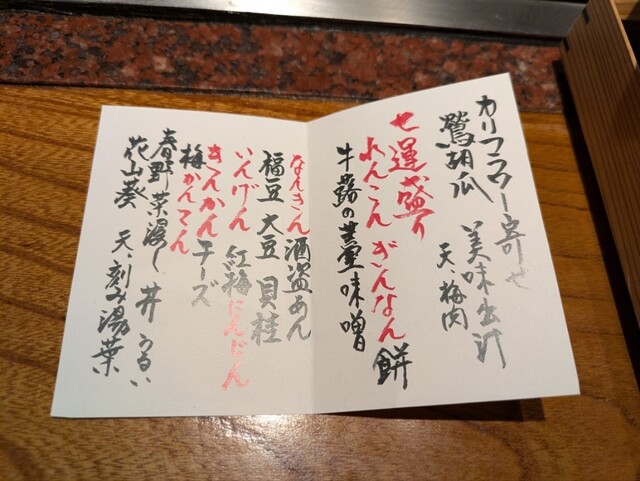 カリフラワー寄せ
鶯胡瓜 美味出汁
天、梅肉
七運盛り
れんこん ぎんなん餅
牛蕗の薹味噌
なんきん酒盗あん
福豆 大豆 貝柱
いんげん 紅梅にんじん
きんかんチーズ
梅かんてん
春野菜浸し 丼 うるい
花山葵 天、刻み湯葉